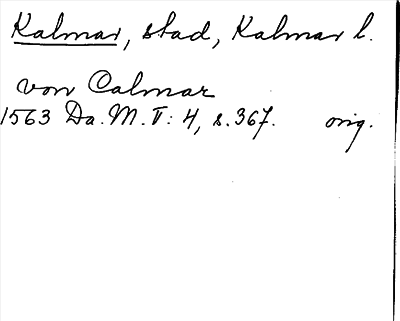 Kalmar, stad, Kalmar l.
von Calmar
1563 Da. M. V: 4, s. 367. orig.